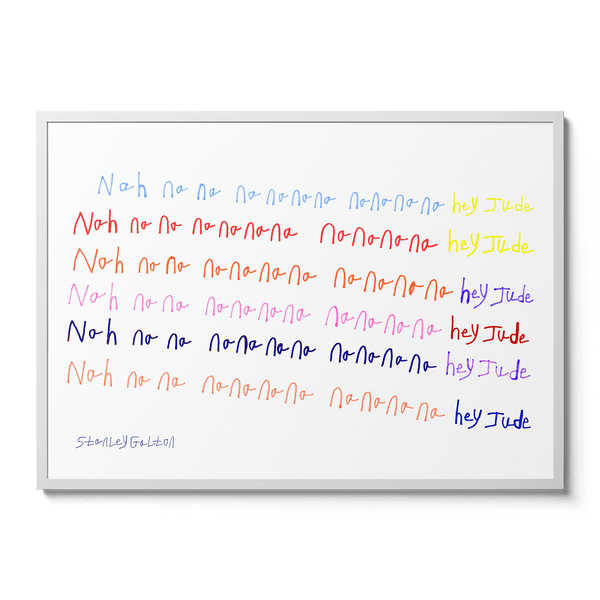 Nah na na na na na na na na na na hey Jude
Nah na na na na na na na na na na hey Jude
Nah na na na na na na na na na na na hey Jude
Nah na na na na na na na na na na na hey Jude
Nah na na na na na na na na na na hey Jude
Nah na na na na na na na na na na hey Jude
Stanley Galton